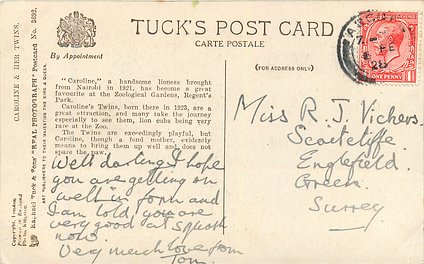 TUCK'S POST CARD
CARTE POSTALE
By Appointment
(FOR ADDRESS ONLY)
"Caroline," a handsome lioness brought
from Nairobi in 1921, has become a great
favourite at the Zoological Gardens, Regent's
Park.
Caroline's Twins, born there in 1923, are a
great attraction, and many take the journey
especially to see them, lion cubs being very
rare at the Zoo.
The Twins are exceedingly playful, but
Caroline, though a fond mother, evidently
means to bring them up well and does not
spare the paw.
Well darling I hope
you are getting on
well in form and
I am told you are
very good at squash
now.
Very much love from
Tom.
Miss R. J. Vickers
Scaitcliffe
Englefield
Green.
Surrey
CAROLINE & HER TWINS.
Raphael Tuck & Sons' "REAL PHOTOGRAPH" Postcard No. 3692.
ART PUBLISHERS TO THEIR MAJESTIES THE KING & QUEEN.
Copyright London
ONE PENNY